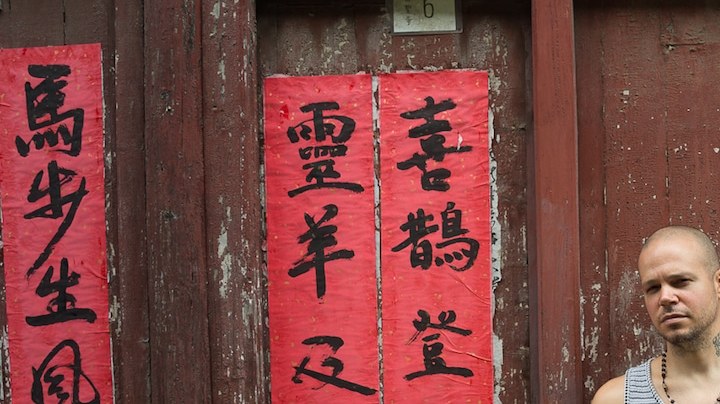 6
喜鵲登
靈羊及
馬步生風